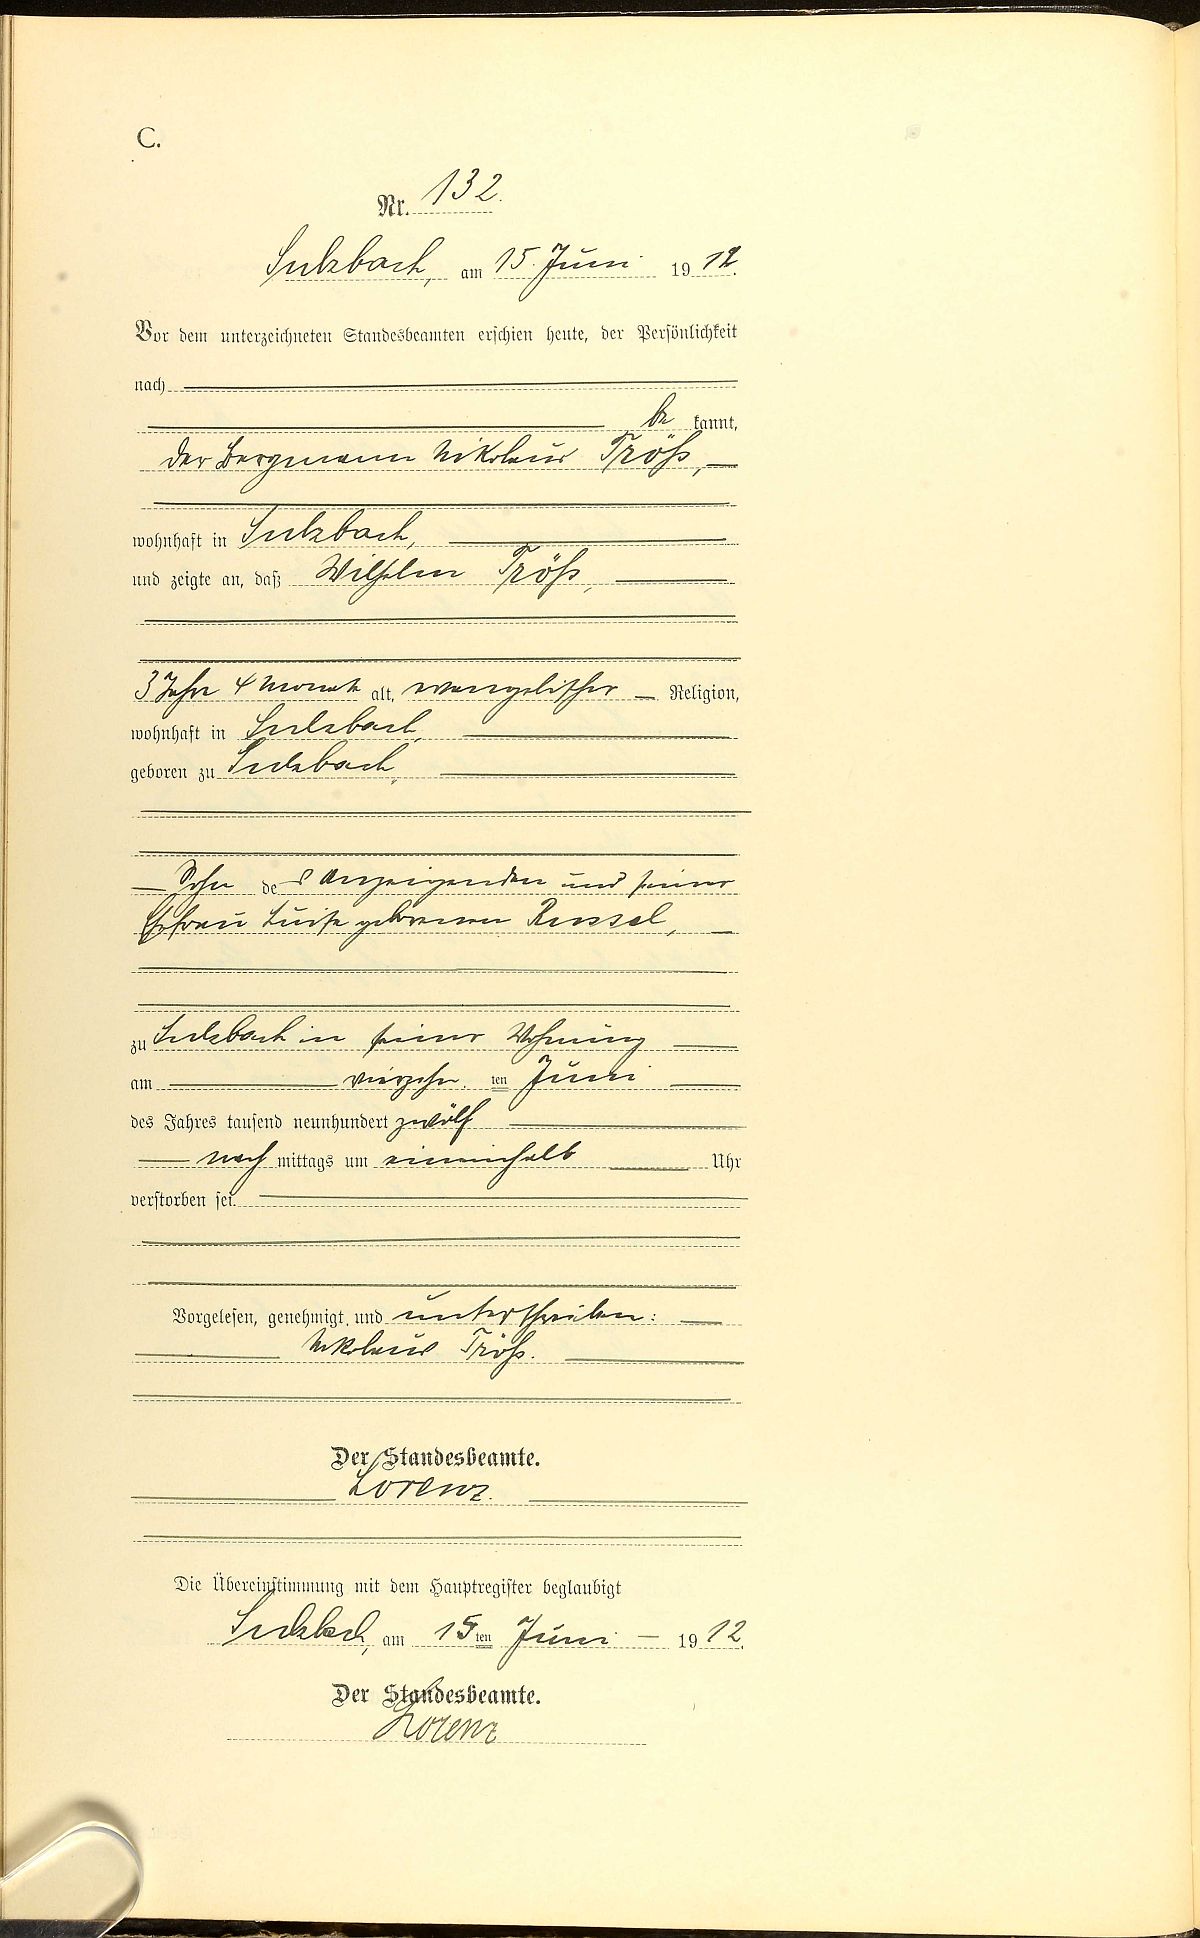 C.
Nr. 132.
Sulzbach, am 15. Juni 19 12.
Vor dem unterzeichneten Standesbeamten erschien heute, der Persönlichkeit
nach
be kannt,
der Bergmann Nikolaus Tröß,
wohnhaft in Sulzbach,
und zeigte an, daß Wilhelm Tröß,
3 Jahre 4 Monate alt, evangelischer Religion,
wohnhaft in Sulzbach,
geboren zu Sulzbach,
Sohn des Anzeigenden und seiner
Ehefrau Luise geborenen Russel,
zu Sulzbach in seiner Wohnung
am vierzehn ten Juni
des Jahres tausend neunhundert zwölf
nach mittags um eineinhalb Uhr
verstorben sei.
Vorgelesen, genehmigt und unterschrieben:
Nikolaus Tröß.
Der Standesbeamte.
Lorenz.
Die Übereinstimmung mit dem Hauptregister beglaubigt
Sulzbach, am 15ten Juni 19 12.
Der Standesbeamte.
Lorenz